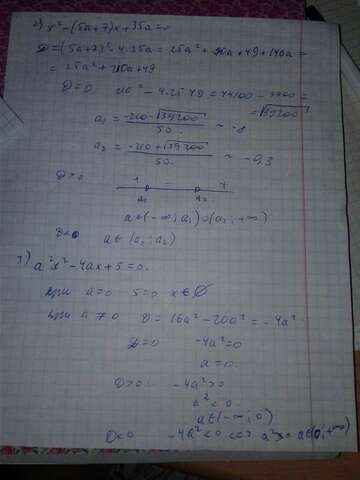 2) x² - (5a+7)x + 35a = 0
D = (5a+7)² - 4·35a = 25a² + 70a + 49 + 140a =
= 25a² + 210a + 49
D = 0 210² - 4·25·49 = 44100 - 4900 =
= √39200
a₁ = (-210 - √39200)/50 ~ -8
a₂ = (-210 + √39200)/50 ~ -0,3
D > 0
+ - +
a₁ a₂
a ∈ (-∞; a₁) ∪ (a₂; +∞)
D < 0 a ∈ (a₁; a₂)
3) a²x² - 4ax + 5 = 0.
при a = 0 5 = 0 x ∈ ∅
при a ≠ 0 D = 16a² - 20a² = -4a²
D = 0 -4a² = 0
a = 0.
D > 0 -4a² > 0
a² < 0
a ∈ (-∞; 0)
D < 0 -4a² < 0 <=> a² > 0 a ∈ (0; +∞)